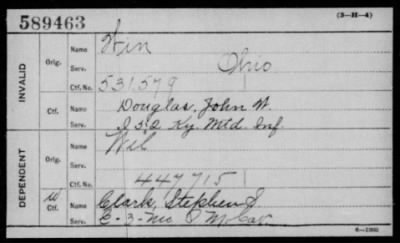 589463 (3-H-4)
INVALID
Orig. Name Win
Serv. Ohio
Ctf. No. 531,579
Ctf. Name Douglas, John W.
Serv. I 32 Ky. Mtd. Inf.
DEPENDENT
Orig. Name Wil
Serv.
Ctf. No. 447715
W Ctf. Name Clark, Stephen S
Serv. E-3-Mo S M Cav.
6-1980